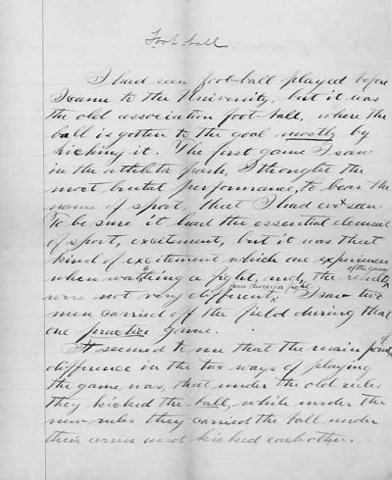 Foot-ball.
I had seen foot-ball played before
I came to the University, but it was
the old association foot-ball, where the
ball is gotten to the goal mostly by
kicking it. The first game I saw
in the athletic park, I thought the
most brutal performance, to bear the
name of sport, that I had ever seen.
To be sure it had the essential element
of sport, excitement, but it was that
kind of excitement which one experiences
when watching a fight, and the results
of the game
were not very different
from those of a fight.
I saw two
men carried off the field during that
one practice game.
It seemed to me that the main point of
difference in the two ways of playing
the game was, that under the old rules
they kicked the ball, while under the
new rules they carried the ball under
their arms and kicked each other.